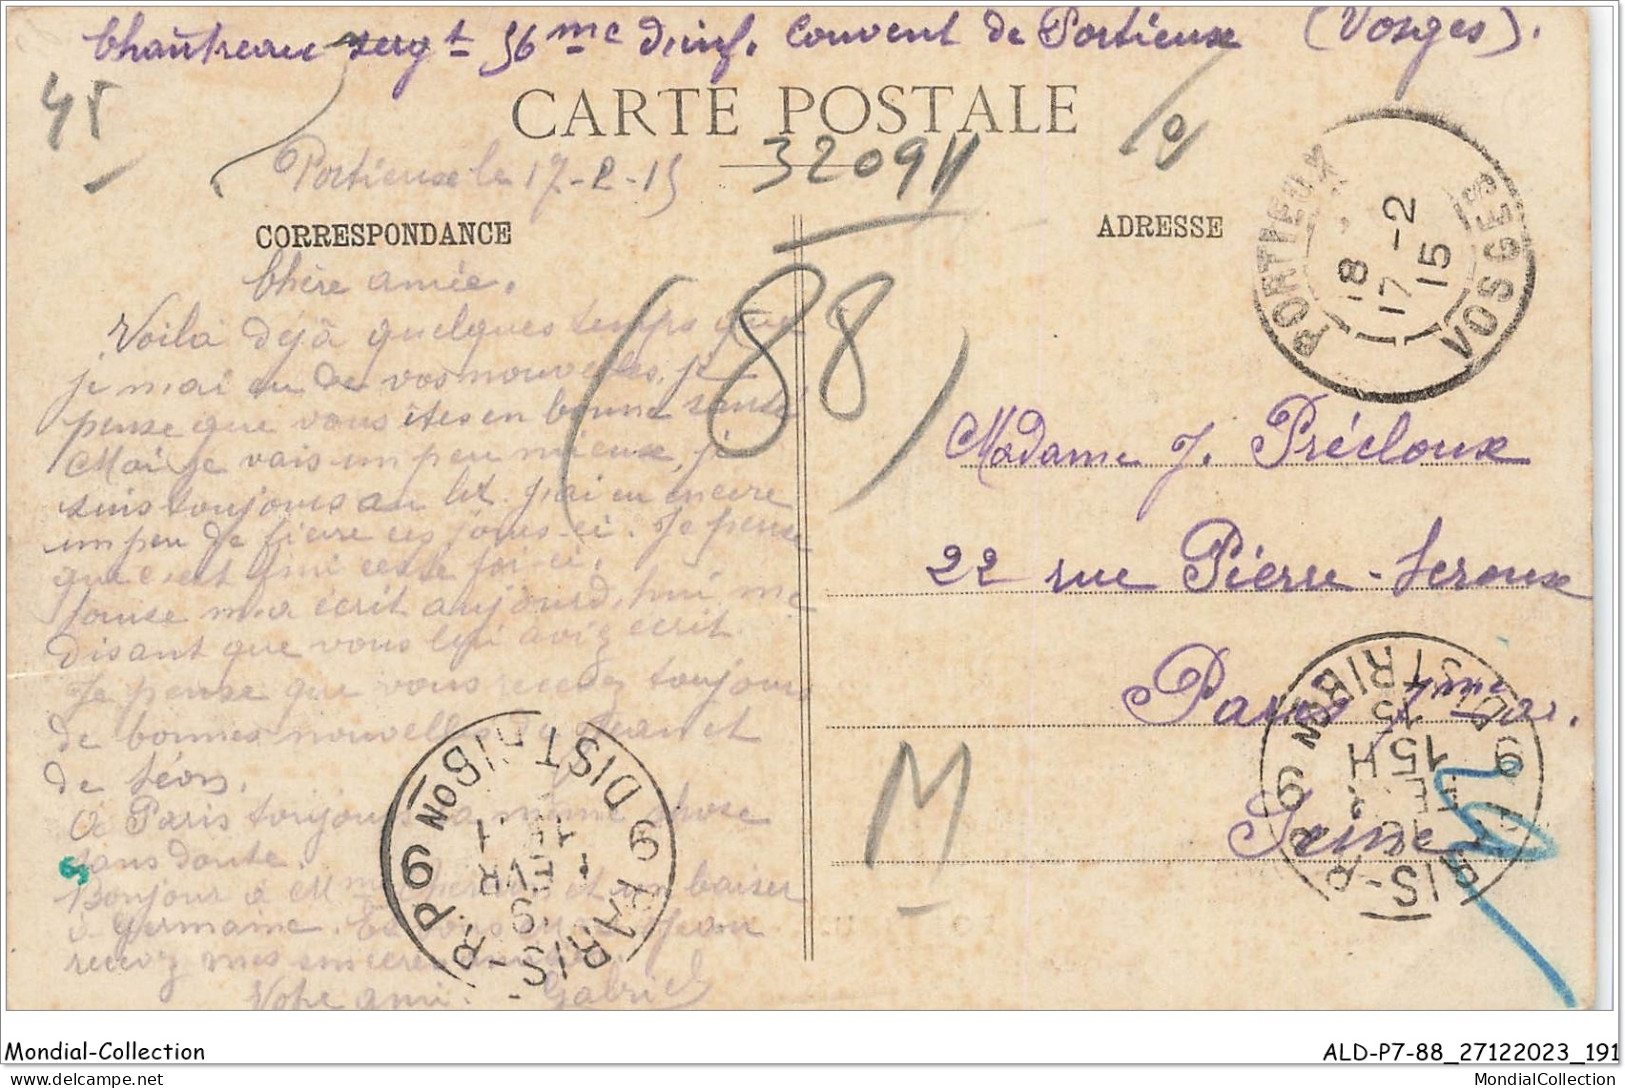 Chantreau sergt 56me d'inf. Couvent de Portieux (Vosges).
45
CARTE POSTALE
Portieux le 17-2-15
32091
CORRESPONDANCE
ADRESSE
PORTIEUX
18
17-2
15
VOSGES
Chère amie.
Voilà déjà quelques temps que
je n'ai eu de vos nouvelles, je
pense que vous êtes en bonne santé
Moi je vais un peu mieux, je
suis toujours au lit. J'ai eu encore
un peu de fièvre ces jours-ci. Je pense
que c'est fini cette fois-ci.
Louise m'a écrit aujourd'hui me
disant que vous lui aviez écrit.
Je pense que vous recevez toujours
de bonnes nouvelles de Jean et
de Léon.
A Paris toujours la même chose
sans doute.
Bonjour à Mme et un baiser
à Germaine. Et vous
recevez mes sincères
Votre ami. Gabriel
(88)
Madame J. Précloux
22 rue Pierre-Leroux
Paris 7me ar.
Seine
M
PARIS-R.P. 6 DISTRIBON 6
15 H
PARIS-R.P. 6 DISTRIBON 6
FEVR
Mondial-Collection
ALD-P7-88_27122023_191
delcampe.net
MondialCollection